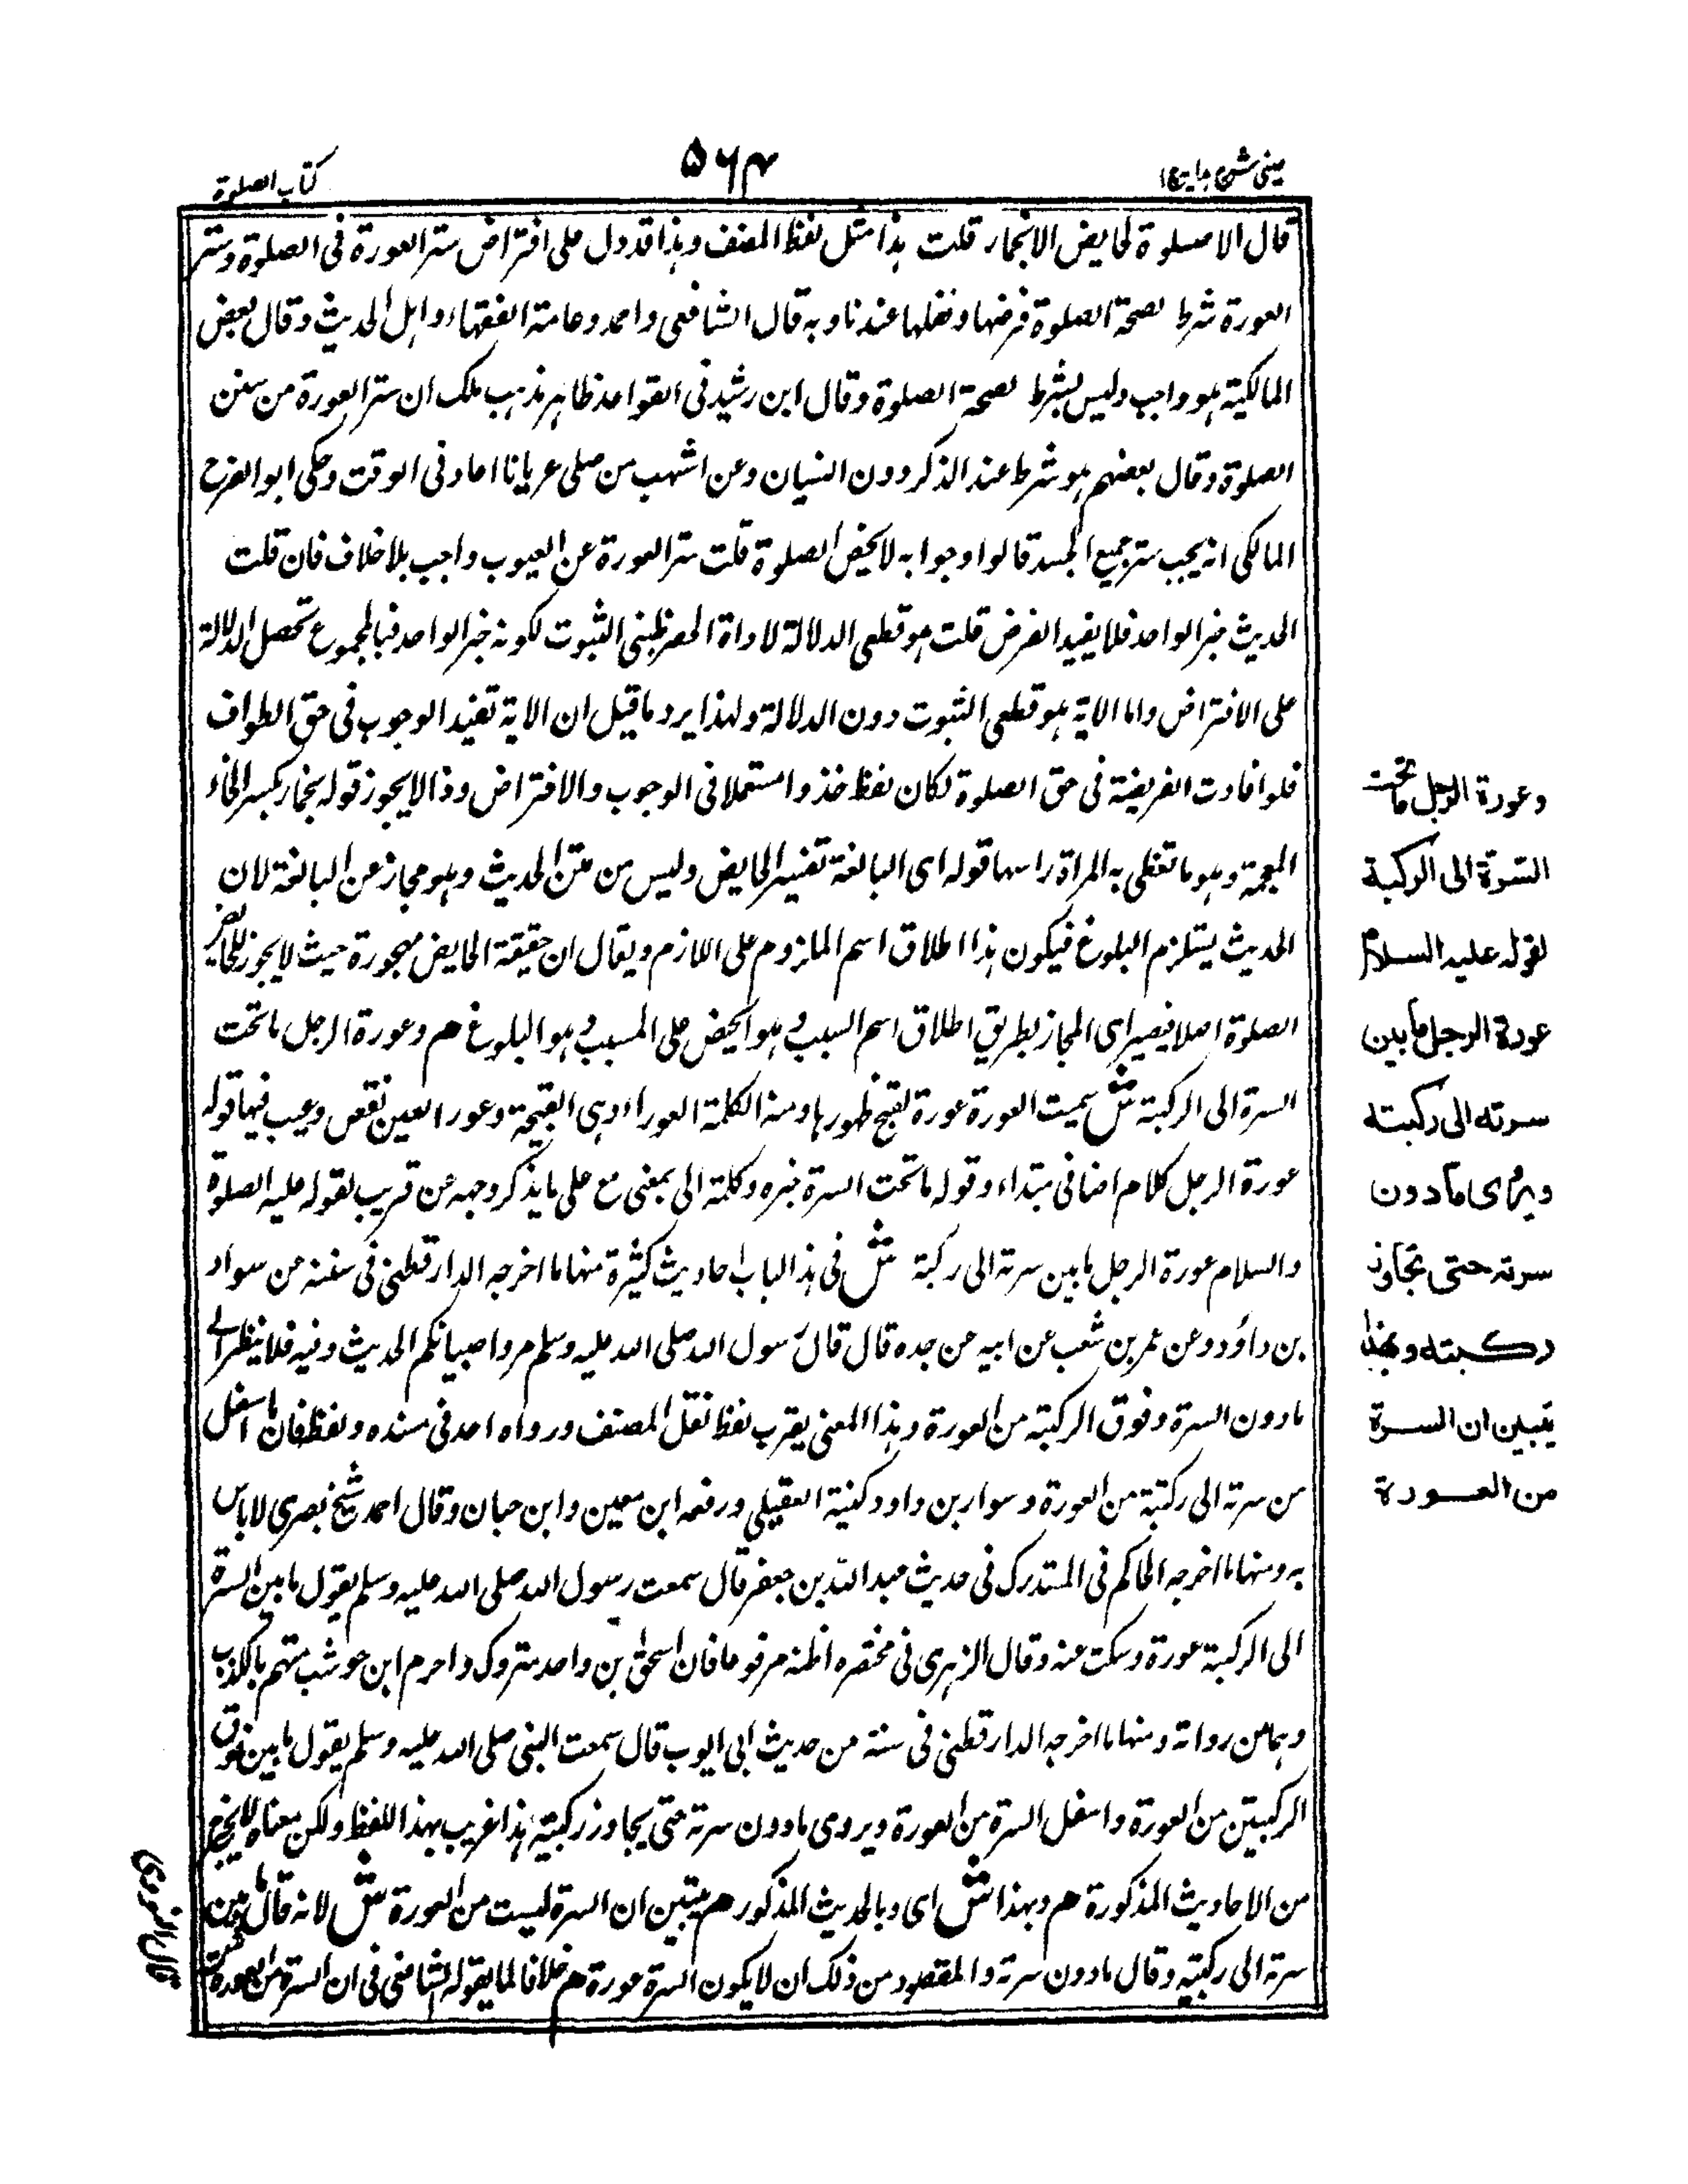 عینی شرح ہدایہ ج ١
۵۶۴
کتاب الصلوة
قال لا صلوة لحایض الا بخمار قلت ہذا مثل لفظ المصنف وہذا قد دل علی افتراض ستر العورة فی الصلوة وستر
العورة شرط لصحة الصلوة فرضہا ونفلہا عندنا وبہ قال الشافعی واحمد وعامة الفقہاء واہل الحدیث وقال بعض
المالکیة ہو واجب ولیس بشرط لصحة الصلوة وقال ابن رشید فی القواعد ظاہر مذہب ملک ان ستر العورة من سنن
الصلوة وقال بعضہم ہو شرط عند الذکر دون النسیان وعن اشہب من صلی عریانا اعاد فی الوقت وحکی ابو الفرج
المالکی انہ یجب ستر جمیع الجسد قالوا وجوابہ لا یخص الصلوة قلت ستر العورة عن العیوب واجب بلا خلاف فان قلت
الحدیث خبر الواحد فلا یفید الفرض قلت ہو قطعی الدلالة لاداة الحصر ظنی الثبوت لکونہ خبر الواحد فبالمجموع تحصل الدلالة
علی الافتراض واما الایة ہو قطعی الثبوت دون الدلالة ولہذا یرد ما قیل ان الایة تفید الوجوب فی حق الطواف
فلو افادت الفریضة فی حق الصلوة لکان لفظ خذوا مستعملا فی الوجوب والافتراض وذا لا یجوز قولہ بخمار بکسر الخاء
المعجمة وہو ما تغطی بہ المراة راسہا قولہ ای البالغة تفسیر الحایض ولیس من متن الحدیث وہو مجاز عن البالغة لان
الحدیث یستلزم البلوغ فیکون ہذا اطلاق اسم الملزوم علی اللازم ویقال ان حقیقة الحایض مہجورة حیث لا یجوز للحایض
الصلوة اصلا فیصیر ای المجاز بطریق اطلاق اسم السبب وہو الحیض علی المسبب وہو البلوغ ہم وعورة الرجل ما تحت
السرة الی الرکبة ش سمیت العورة عورة لقبح ظہورہا ومنہ الکلمة العوراء وہی القبیحة وعور العین نقص وعیب فیہا قولہ
عورة الرجل کلام اضافی مبتداء وقولہ ما تحت السرة خبرہ وکلمة الی بمعنی مع علی ما یذکر وجہہ عن قریب لقولہ علیہ الصلوة
والسلام عورة الرجل ما بین سرتہ الی رکبة ش فی ہذا الباب احادیث کثیرة منہا ما اخرجہ الدارقطنی فی سننہ من سواد
بن داؤد وعن عمر بن شعب عن ابیہ عن جدہ قال قال رسول اللہ صلی اللہ علیہ وسلم مروا صبیانکم الحدیث وفیہ فلا ینظر الی
ما دون السرة وفوق الرکبة من العورة وہذا المعنی یقرب لفظ نقل المصنف ورواہ احمد فی مسندہ ولفظ فان ما اسفل
من سرتہ الی رکبتہ من العورة وسوار بن داود کنیة العقیلی ورفعہ ابن معین وابن حبان وقال احمد شیخ بصری لا باس
بہ ومنہا ما اخرجہ الحاکم فی المستدرک فی حدیث عبد اللہ بن جعفر قال سمعت رسول اللہ صلی اللہ علیہ وسلم یقول ما بین السرة
الی الرکبة عورة وسکت عنہ وقال الزہری فی مختصرہ اظنہ مرفوعا فان اسحق بن واحد متروک واحرم ابن حوشب متہم بالکذب
وہما من رواتہ ومنہا ما اخرجہ الدارقطنی فی سنتہ من حدیث ابی ایوب قال سمعت النبی صلی اللہ علیہ وسلم یقول ما بین فوق
الرکبتین من العورة واسفل السرة من العورة ویروی ما دون سرتہ حتی یجاوز رکبتیہ ہذا غریب بہذا اللفظ ولکن معناہ لا یخرج
من الاحادیث المذکورة ہم وبہذا ش ای وبالحدیث المذکور ہم یتبین ان السرة لیست من العورة ش لانہ قال ما بین
سرتہ الی رکبتیہ وقال ما دون سرتہ والمقصود من ذلک ان لا یکون السرة عورة ہم خلافا لما یقولہ الشافعی فی ان السرة من العورة
وعورة الرجل ما تحت
السرة الی الرکبة
لقوله علیه السلام
عورة الرجل ما بین
سرته الی رکبته
ویروی ما دون
سرته حتی تجاوز
رکبته وبهذا
یتبین ان السرة
من العورة
قال النووی